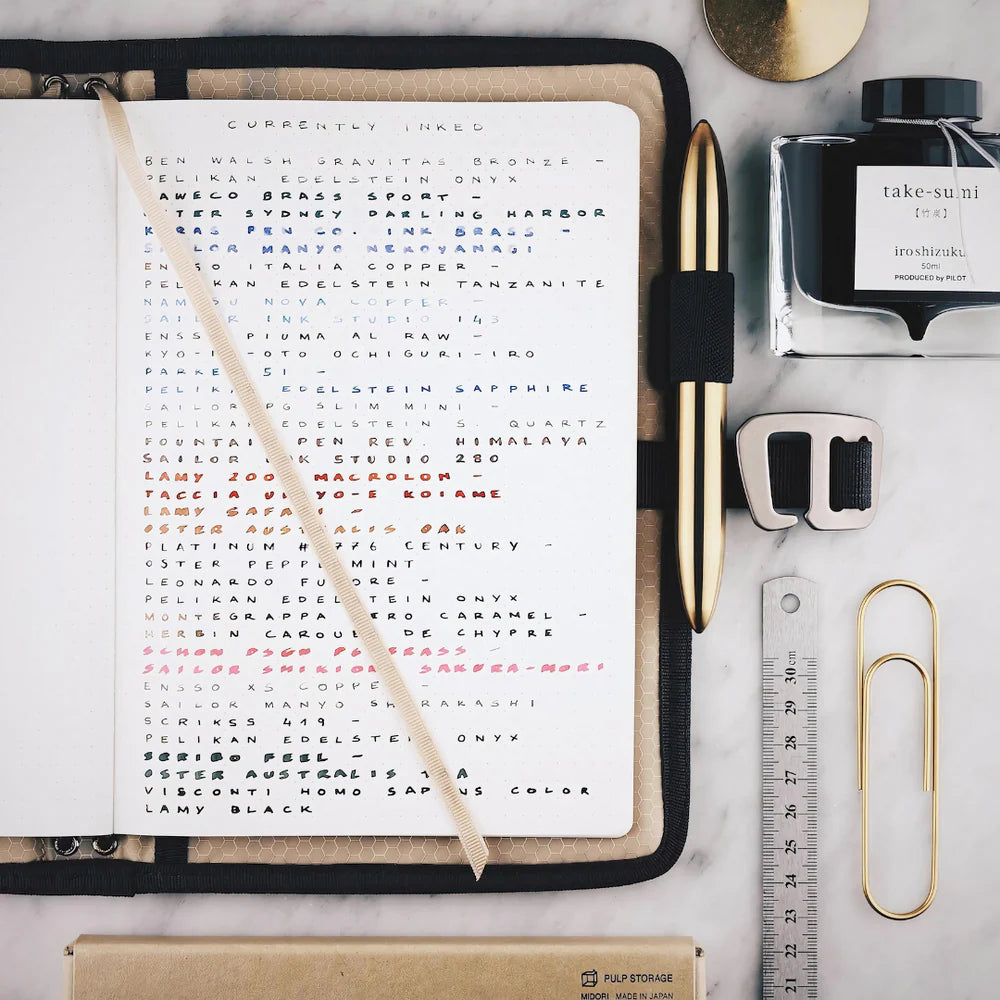 CURRENTLY INKED
BEN WALSH GRAVITAS BRONZE -
PELIKAN EDELSTEIN ONYX
KAWECO BRASS SPORT -
OSTER SYDNEY DARLING HARBOR
KARAS PEN CO. INK BRASS -
SAILOR MANYO NEKOYANAGI
ENSSO ITALIA COPPER -
PELIKAN EDELSTEIN TANZANITE
NAMISU NOVA COPPER -
SAILOR INK STUDIO 143
ENSSO PIUMA AL RAW -
KYO-NO-OTO OCHIGURI-IRO
PARKER 51 -
PELIKAN EDELSTEIN SAPPHIRE
SAILOR PG SLIM MINI -
PELIKAN EDELSTEIN S. QUARTZ
FOUNTAIN PEN REV. HIMALAYA
SAILOR INK STUDIO 280
LAMY 2000 MACROLON -
TACCIA UKIYO-E KOIAME
LAMY SAFARI -
OSTER AUSTRALIS OAK
PLATINUM #3776 CENTURY -
OSTER PEPPERMINT
LEONARDO FURORE -
PELIKAN EDELSTEIN ONYX
MONTEGRAPPA ZERO CARAMEL -
HERBIN CAROUBE DE CHYPRE
SCHON DSGN PG BRASS -
SAILOR SHIKIORI SAKURA-MORI
ENSSO XS COPPER -
SAILOR MANYO SHIRAKASHI
SCRIKSS 419 -
PELIKAN EDELSTEIN ONYX
SCRIBO FEEL -
OSTER AUSTRALIS
VISCONTI HOMO SAPIENS COLOR
LAMY BLACK
take-sumi
【竹炭】
iroshizuku
50ml
PRODUCED by PILOT
30 cm
29
28
27
26
25
24
23
22
21
PULP STORAGE
MIDORI MADE IN JAPAN